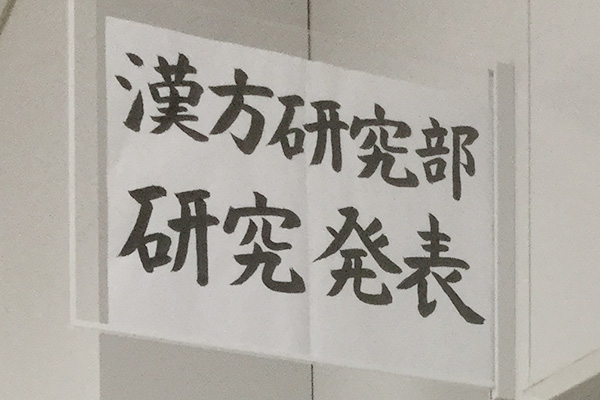 漢方研究部
研究発表